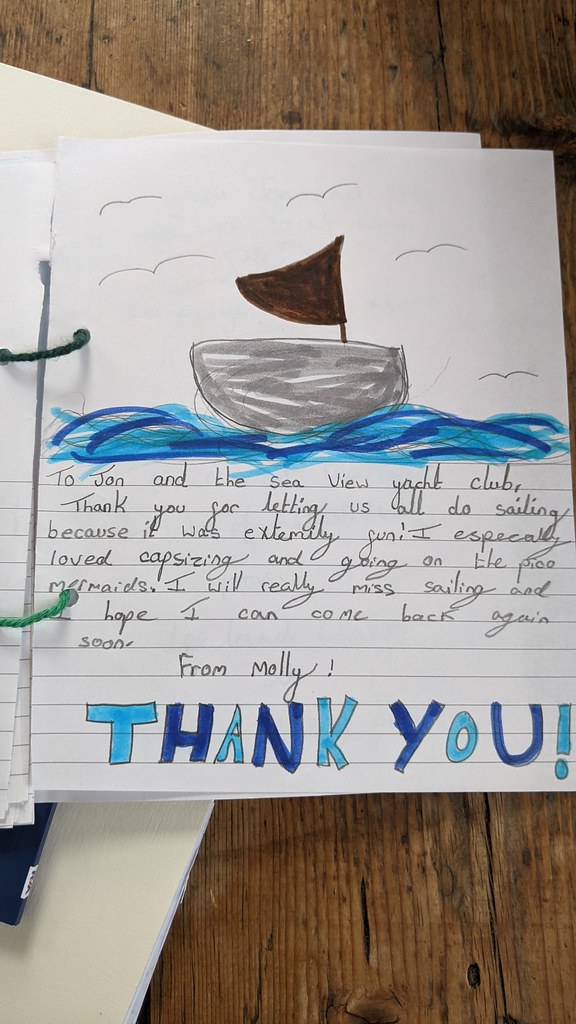 To Jon and the Sea View yacht club,
Thank you for letting us all do sailing
because it was extemily fun! I especally
loved capsizing and going on the pico
mermaids. I will really miss sailing and
I hope I can come back again
soon.
From Molly!
THANK YOU!